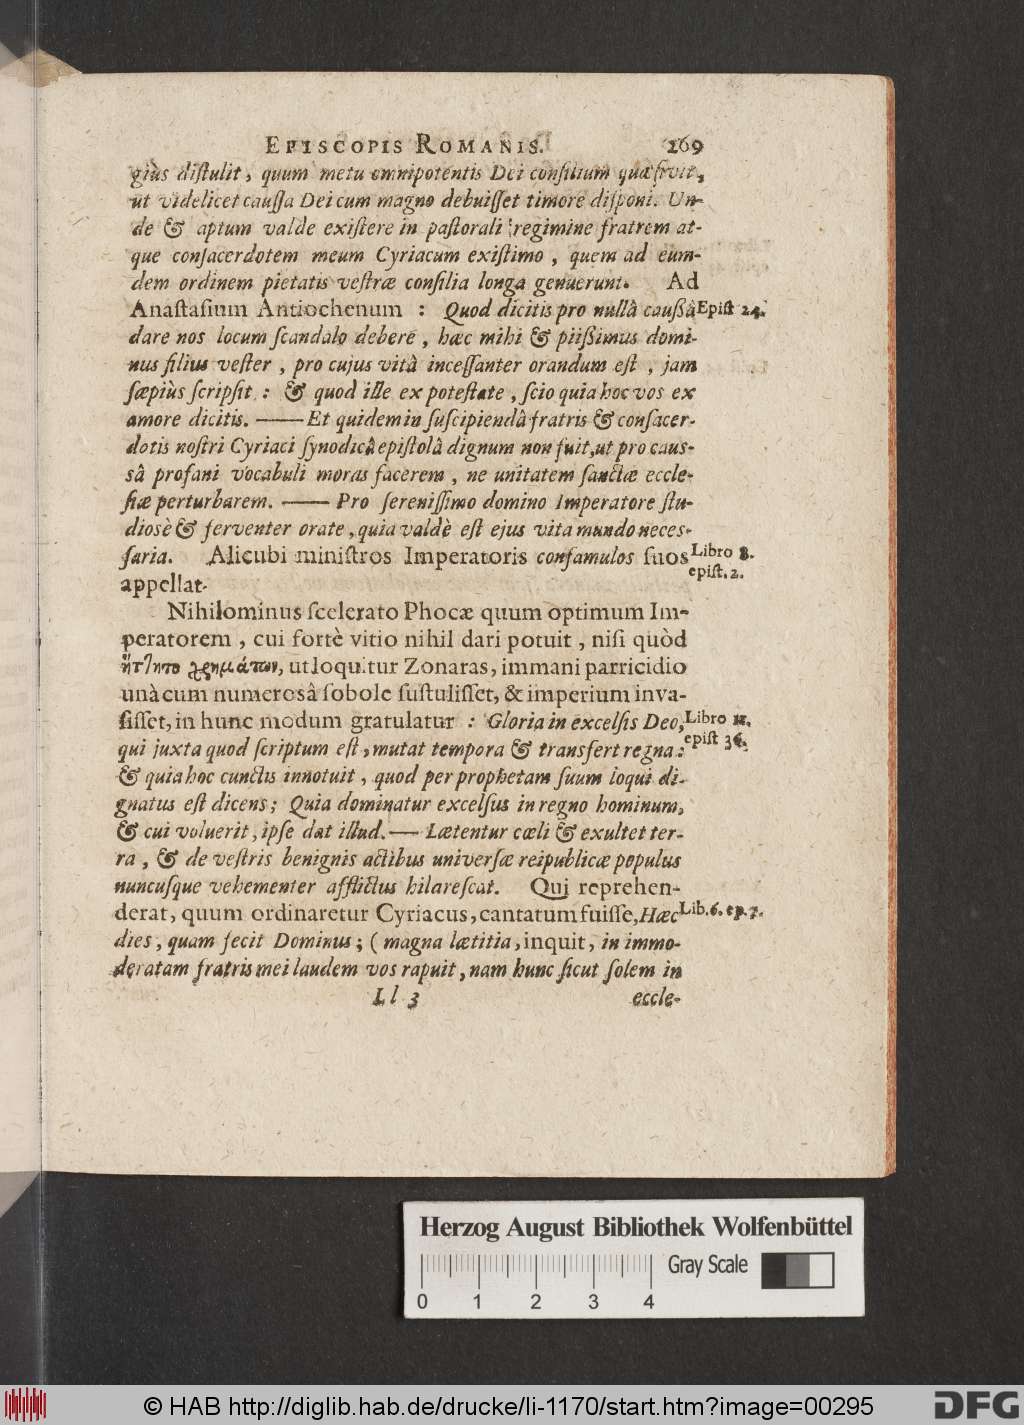 EPISCOPIS ROMANIS. 269
giùs diſtulit, quum metu omnipotentis Dei conſilium quæſivit,
ut videlicet cauſſa Dei cum magno debuiſſet timore diſponi. Un-
de & aptum valde exiſtere in paſtorali regimine fratrem at-
que conſacerdotem meum Cyriacum exiſtimo, quem ad eum-
dem ordinem pietatis veſtræ conſilia longa genuerunt. Ad
Anaſtaſium Antiochenum : Quod dicitis pro nullâ cauſsâ Epiſt 24.
dare nos locum ſcandalo debere, hæc mihi & piiſsimus domi-
nus filius veſter, pro cujus vitâ inceſſanter orandum eſt, jam
ſæpiùs ſcripſit : & quod ille ex poteſtate, ſcio quia hoc vos ex
amore dicitis. —— Et quidem in ſuſcipiendâ fratris & conſacer-
dotis noſtri Cyriaci ſynodicâ epiſtolâ dignum non fuit, ut pro cauſ-
sâ profani vocabuli moras facerem, ne unitatem ſanctæ eccle-
ſiæ perturbarem. —— Pro ſereniſſimo domino Imperatore ſtu-
diosè & ferventer orate, quia valdè eſt ejus vita mundo neceſ-
ſaria. Alicubi miniſtros Imperatoris conſamulos ſuos Libro 8.
appellat. epiſt. 2.
Nihilominus ſcelerato Phocæ quum optimum Im-
peratorem, cui fortè vitio nihil dari potuit, niſi quòd
ἥτ]ητο χρημάτων, ut loquitur Zonaras, immani parricidio
unà cum numerosâ ſobole ſuſtuliſſet, & imperium inva-
ſiſſet, in hunc modum gratulatur : Gloria in excelſis Deo, Libro 11.
qui juxta quod ſcriptum eſt, mutat tempora & transfert regna: epiſt 36.
& quia hoc cunctis innotuit, quod per prophetam ſuum loqui di-
gnatus eſt dicens; Quia dominatur excelſus in regno hominum,
& cui voluerit, ipſe dat illud. — Lætentur cæli & exultet ter-
ra, & de veſtris benignis actibus univerſæ reipublicæ populus
nuncuſque vehementer afflictus hilareſcat. Qui reprehen-
derat, quum ordinaretur Cyriacus, cantatum fuiſſe, Hæc Lib. 6. ep. 7.
dies, quam fecit Dominus; ( magna lætitia, inquit, in immo-
deratam fratris mei laudem vos rapuit, nam hunc ſicut ſolem in
Ll 3 eccle-
Herzog August Bibliothek Wolfenbüttel
Gray Scale
0 1 2 3 4
© HAB http://diglib.hab.de/drucke/li-1170/start.htm?image=00295
DFG